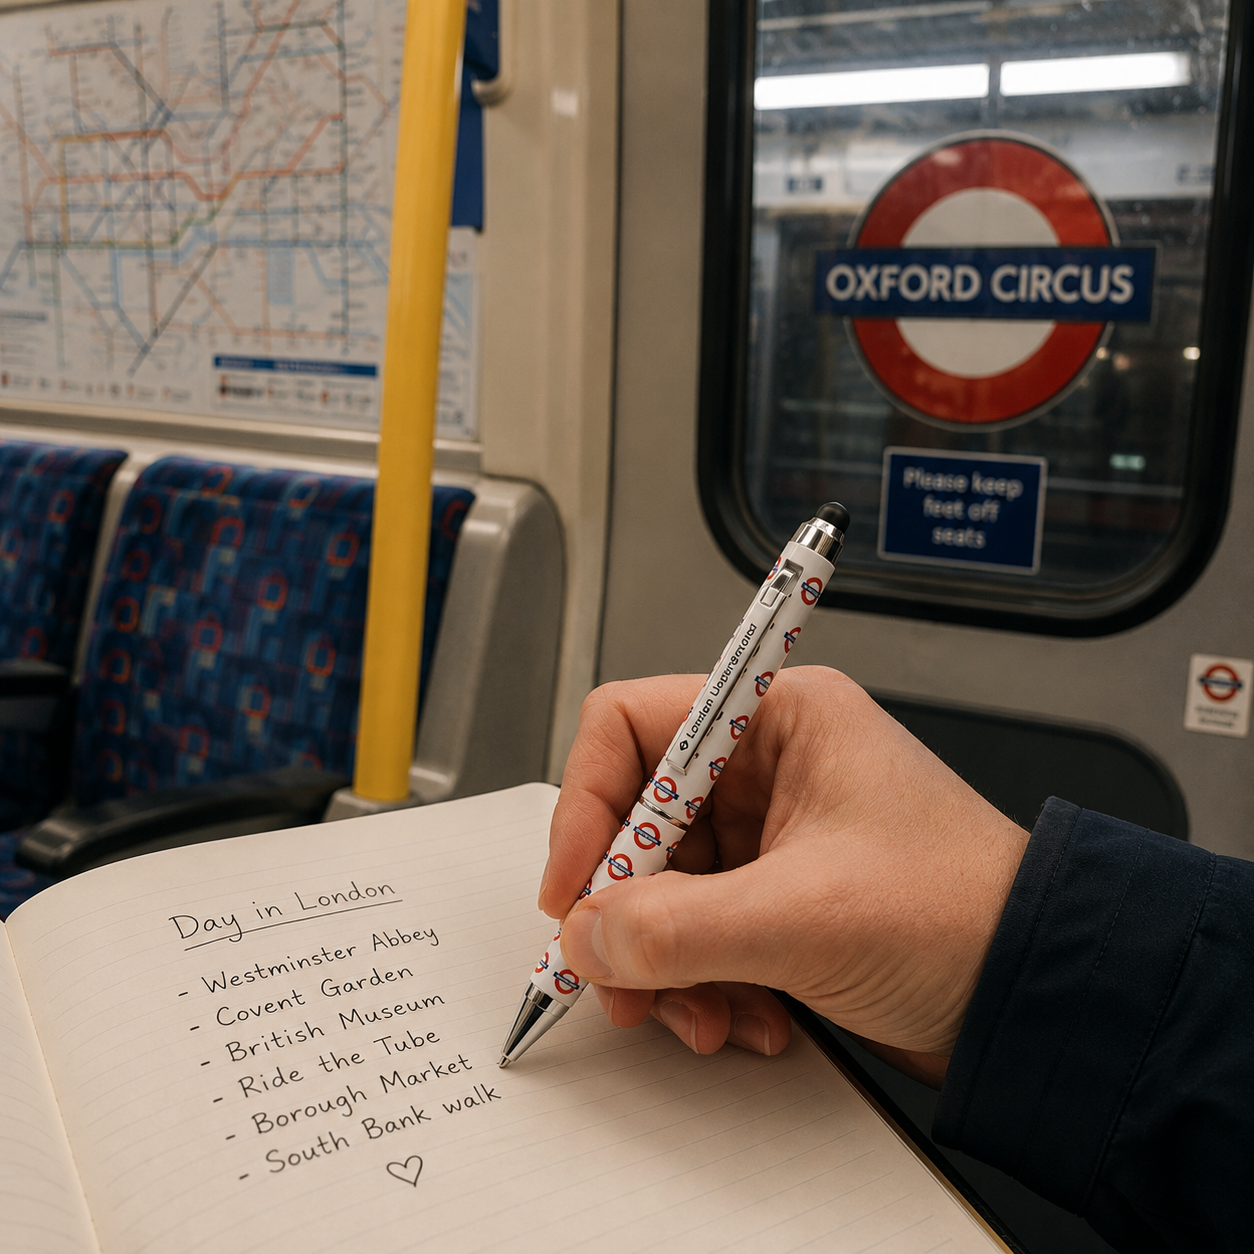 OXFORD CIRCUS
Please keep
feet off
seats
London Underground
Day in London
- Westminster Abbey
- Covent Garden
- British Museum
- Ride the Tube
- Borough Market
- South Bank walk